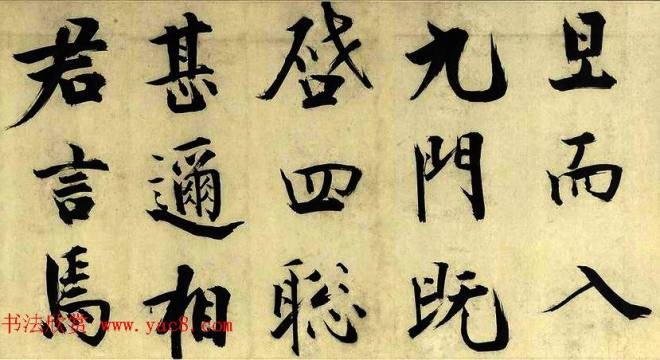 旦而入
九門既
啓四聰
甚邇相
君言焉
书法欣赏 www.yac8.com